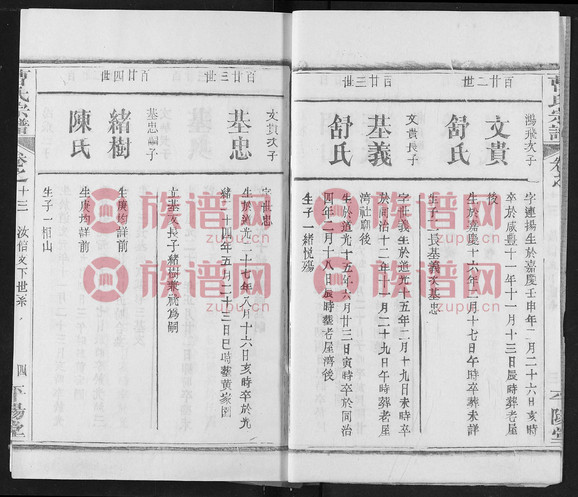 曹氏宗譜
卷之
平陽堂
百廿二世
鴻飛次子
文貴
字連揚生於嘉慶壬申年二月二十六日亥時
卒於咸豐十一年十一月十三日辰時葬老屋
後
舒氏
生於嘉慶十六年二月十七日午時卒葬未詳
生子二長基義次基忠
百廿三世
文貴長子
基義
字世義生於道光十五年二月十九日未時卒
於同治十二年十一月二十九日午時葬老屋
濟社廟後
舒氏
生於道光十五年六月廿三日寅時卒於同治
四年二月十八日辰時塟老屋灣後
生子一緒悦殤
百廿三世
文貴次子
基忠
字世忠
生於道光二十七年八月十六日亥時卒於光
緒二十四年五月二十三日巳時塟黄家園
立基義長子緒樹兼祧爲嗣
百廿四世
基忠嗣子
緒樹
生庚均詳前
陳氏
生庚均詳前
生子一相山
曹氏宗譜
卷之十三
汝信文下世系
四
平陽堂
族谱网
zupu.cn
族谱网
zupu.cn
族谱网
zupu.cn
族谱网
zupu.cn